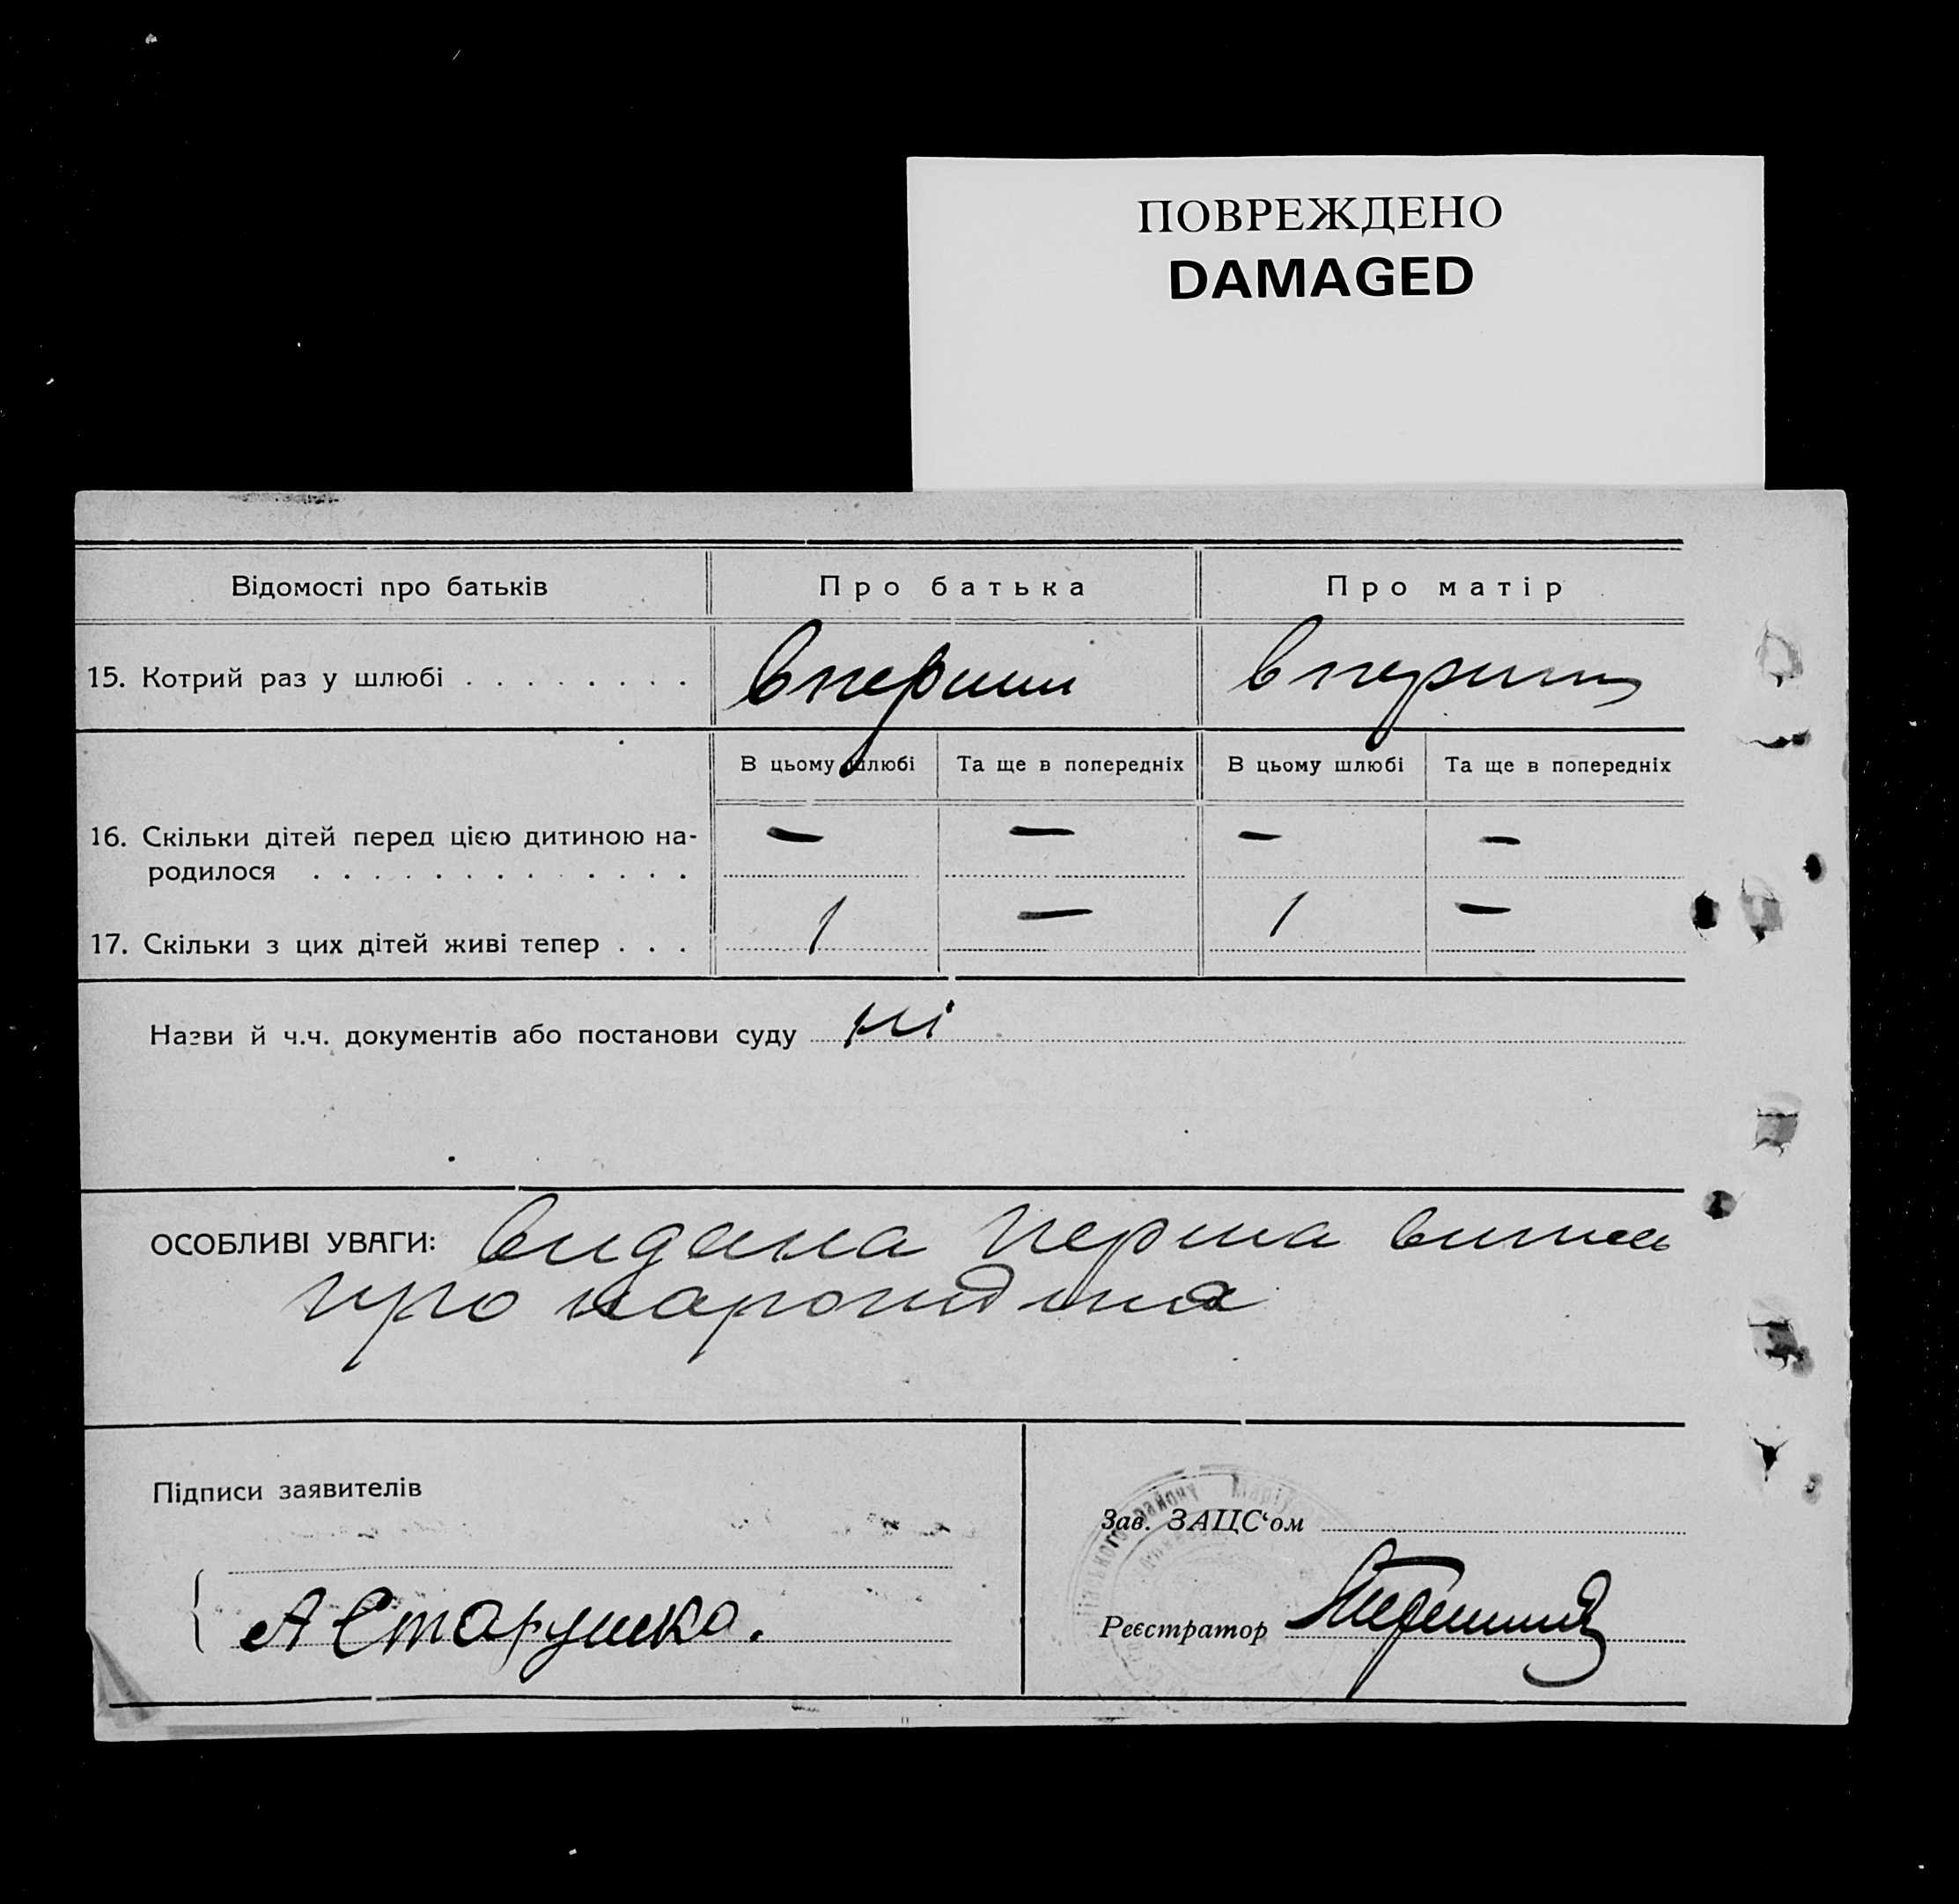 ПОВРЕЖДЕНО
DAMAGED
Відомості про батьків Про батька Про матір
15. Котрий раз у шлюбі . . . . . . . . вперший вперший
В цьому шлюбі Та ще в попередніх В цьому шлюбі Та ще в попередніх
16. Скільки дітей перед цією дитиною на- — — — —
родилося . . . . . . . . . . . . .
17. Скільки з цих дітей живі тепер . . . 1 — 1 —
Назви й ч.ч. документів або постанови суду ні
ОСОБЛИВІ УВАГИ: видана перша випись
про народження
Підписи заявителів
Зав. ЗАЦС‘ом
А Старушко.
Реєстратор